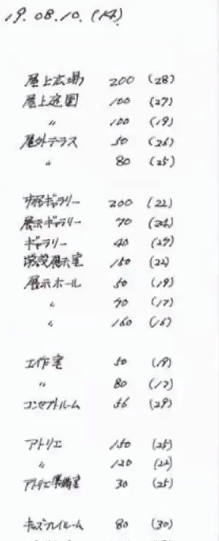 19.08.10.(14)
屋上広場 200 (28)
屋上庭園 100 (27)
〃 100 (19)
屋外テラス 50 (26)
〃 80 (25)
市民ギャラリー 200 (22)
展示ギャラリー 70 (24)
ギャラリー 40 (29)
常設展示室 150 (22)
展示ホール 50 (19)
〃 90 (17)
〃 160 (15)
工作室 50 (19)
〃 80 (17)
コンセプトルーム 56 (29)
アトリエ 150 (25)
〃 120 (22)
アトリエ準備室 30 (25)
キッズプレイルーム 80 (30)